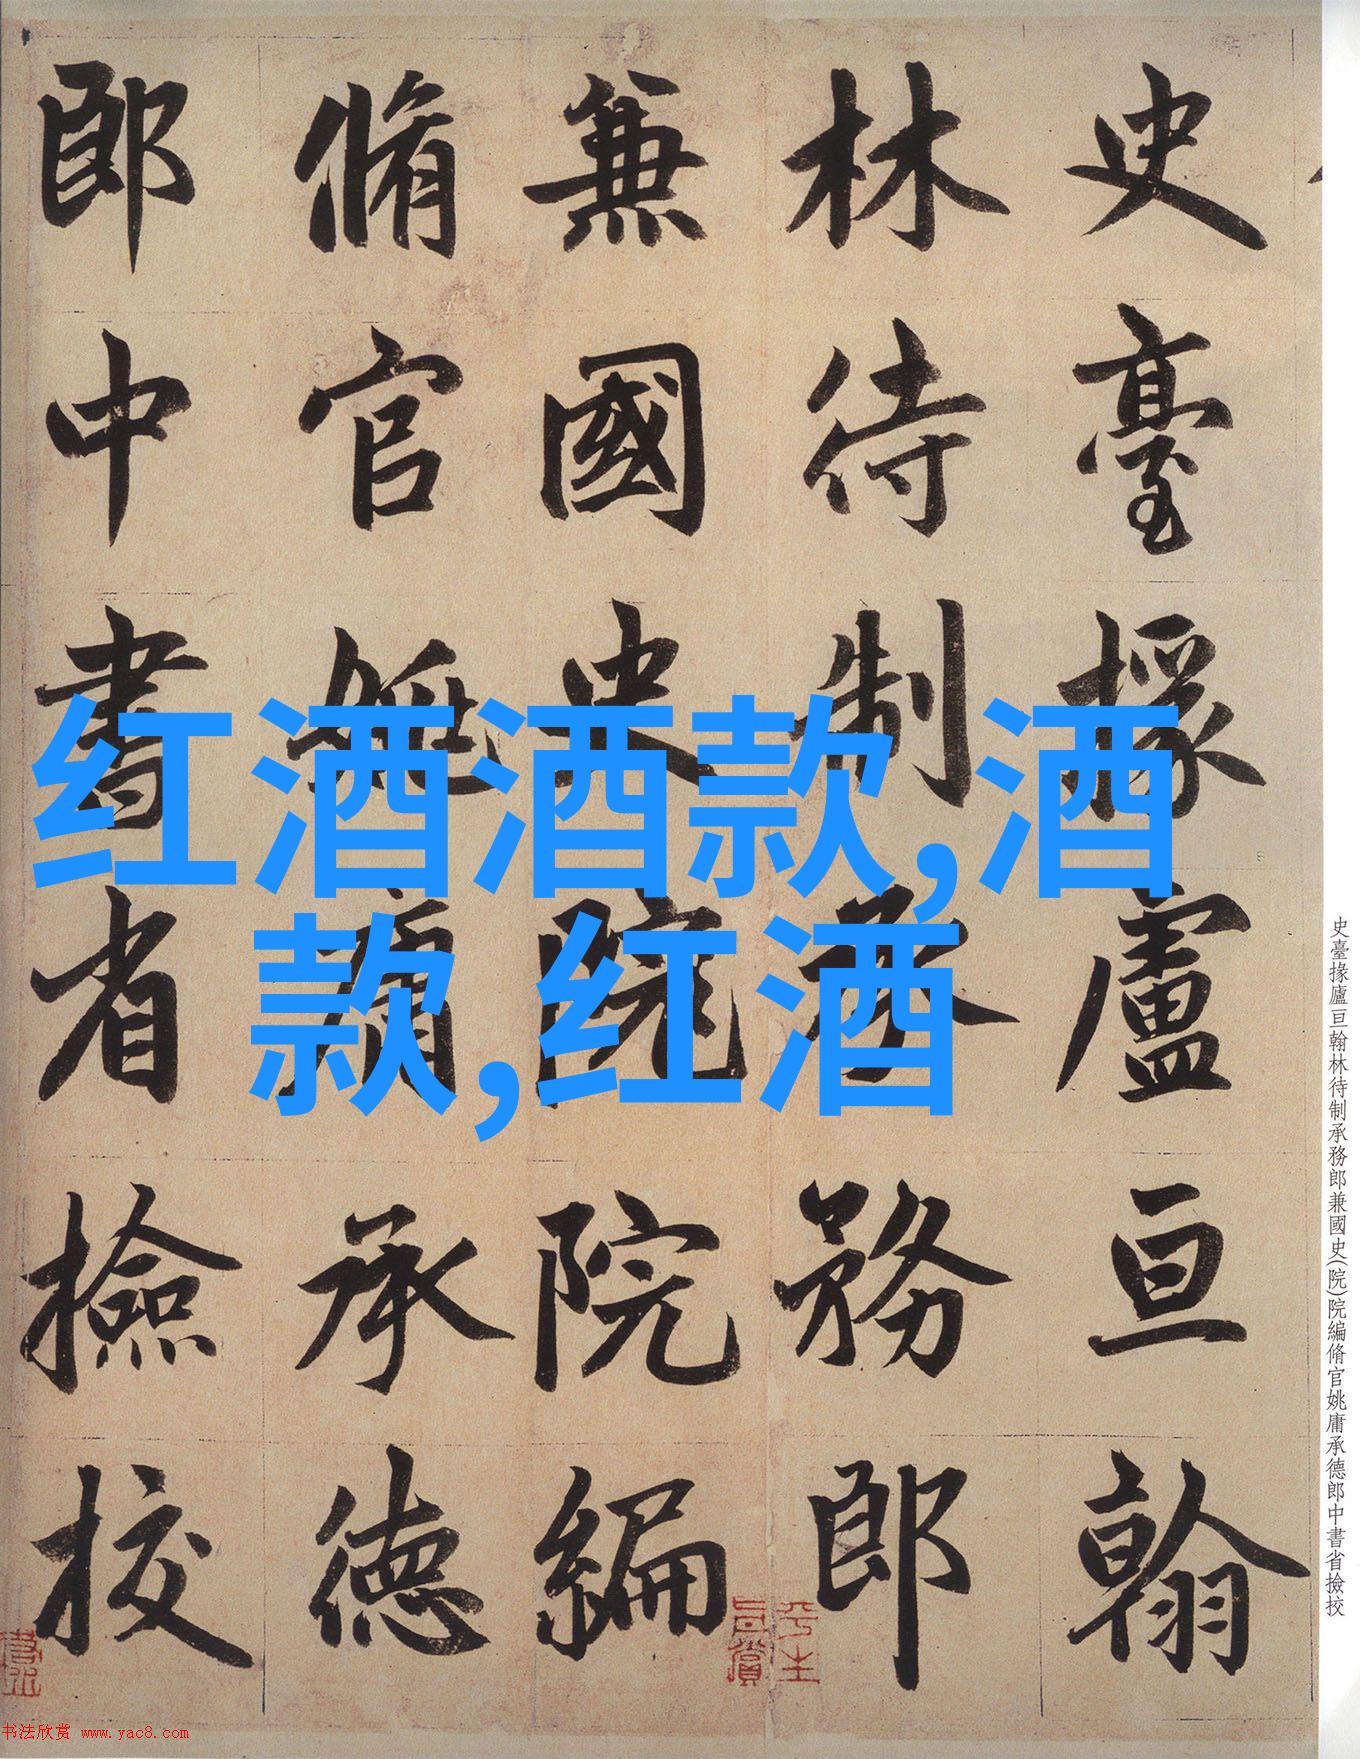 史臺掾盧亘翰
林待制承務郎
兼國史院院編
脩官姚庸承德
郎中書省撿挍
红酒酒款,酒
款,红酒
史臺掾廬亘翰林待制承務郎兼國史(院)院編脩官姚庸承德郎中書省撿挍
平生
真賞
书法欣赏 www.yac8.com